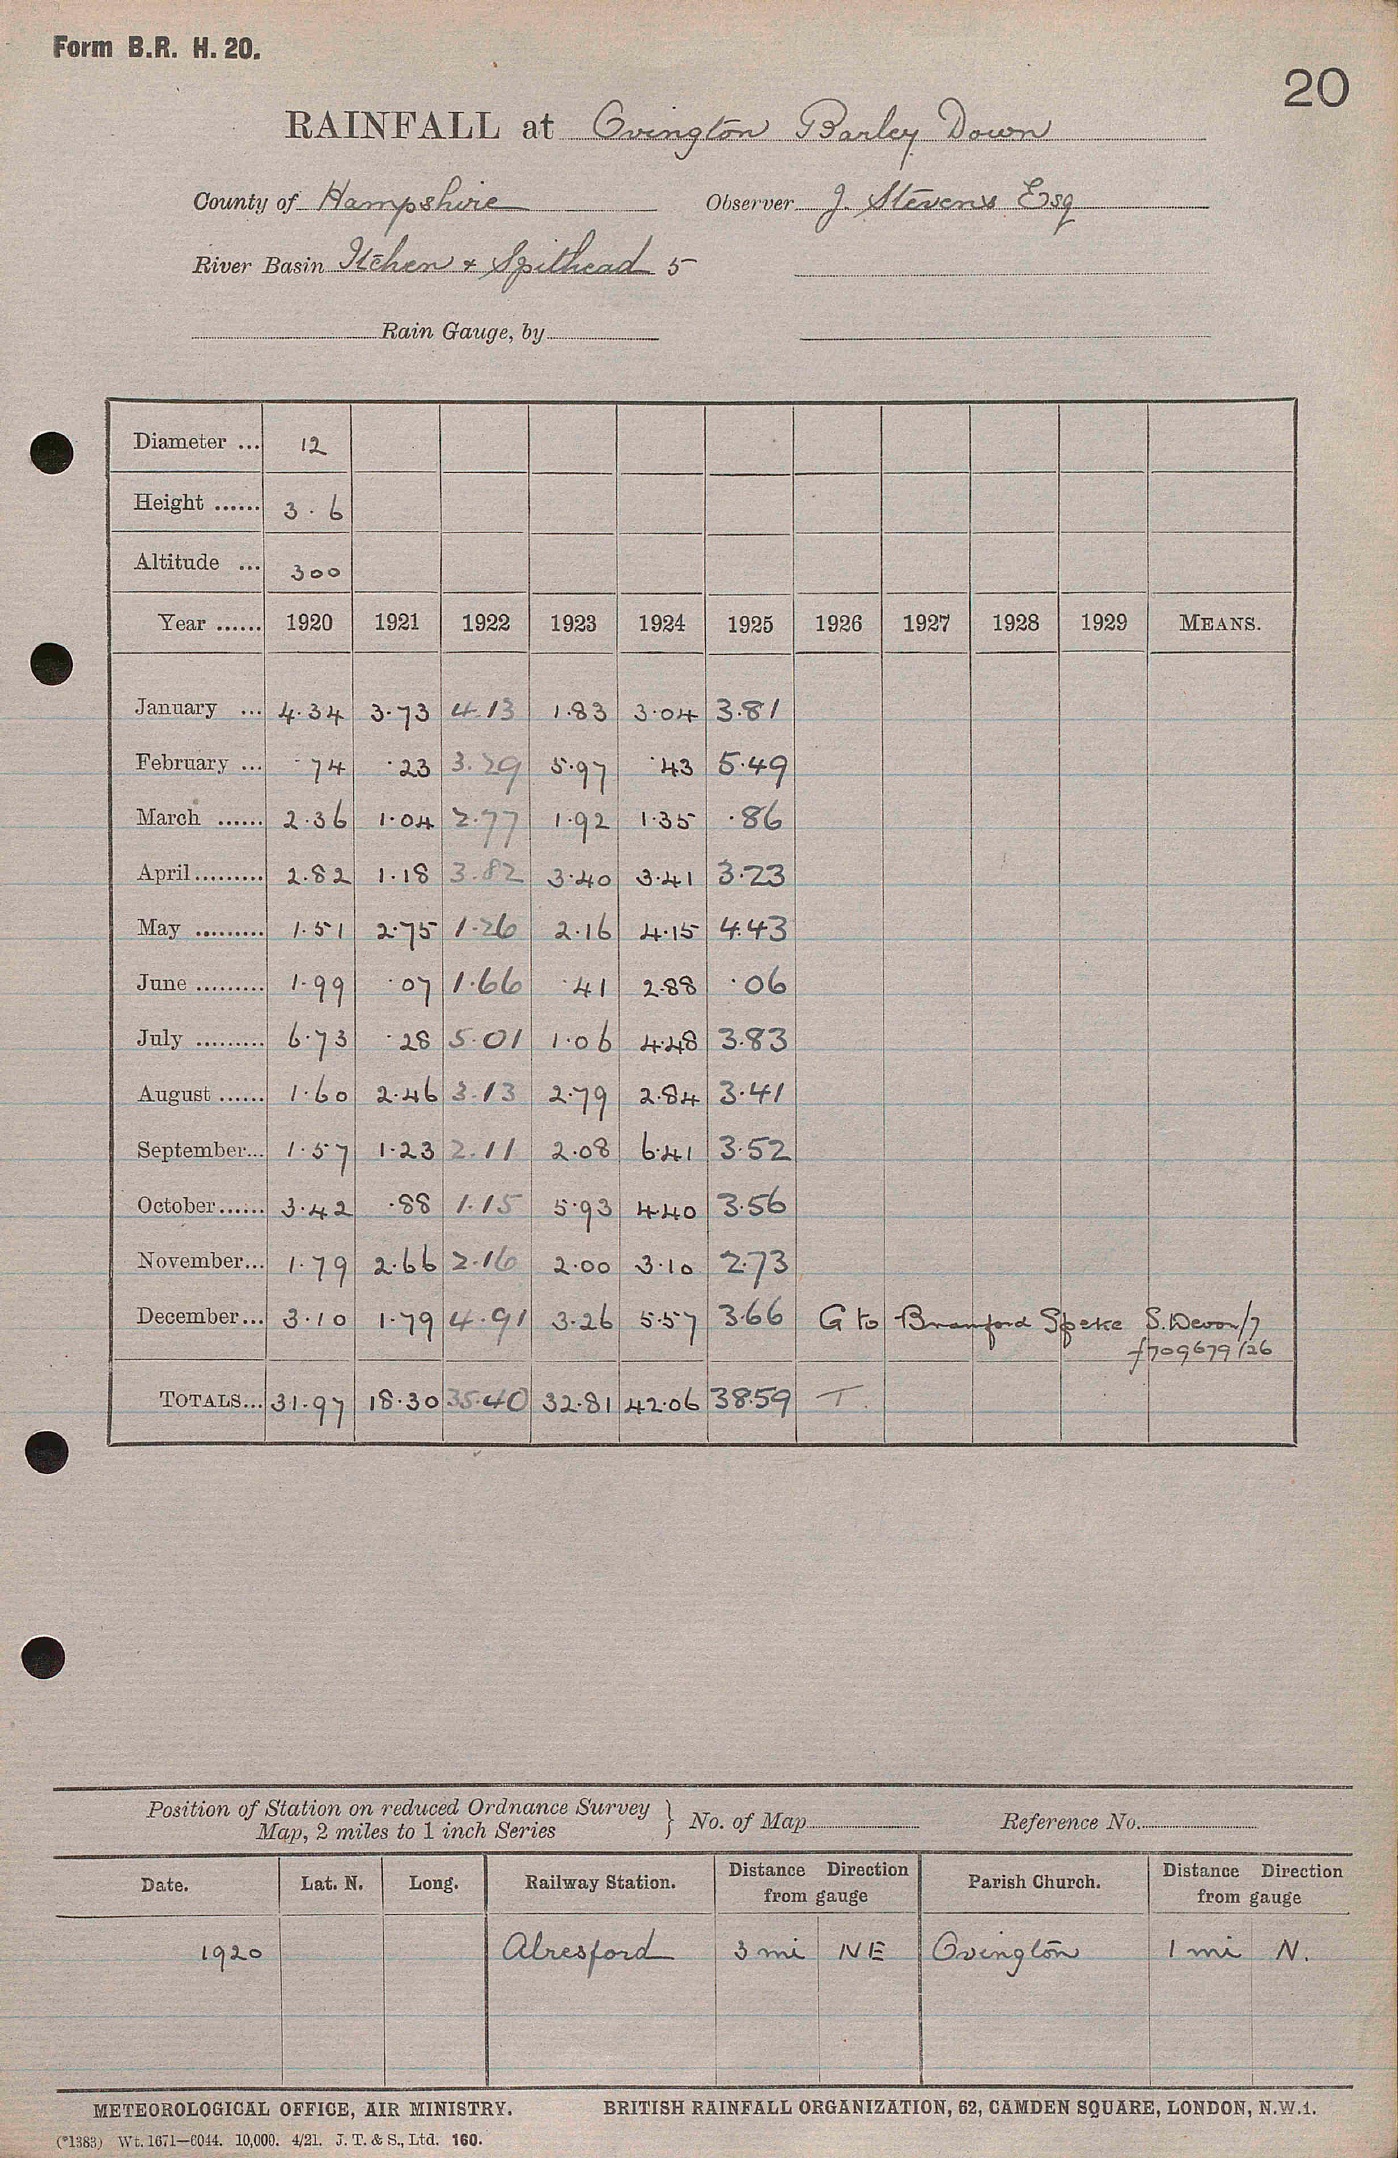 Form B.R. H. 20.
20
RAINFALL at Ovington Barley Down
County of Hampshire Observer J. Stevens Esq
River Basin Itchen + Spithead 5
Rain Gauge, by
Diameter ... 12
Height ...... 3 . 6
Altitude ... 300
Year ...... 1920 1921 1922 1923 1924 1925 1926 1927 1928 1929 MEANS.
January ... 4.34 3.73 4.13 1.83 3.04 3.81
February ... .74 .23 3.29 5.97 .43 5.49
March ...... 2.36 1.04 2.77 1.92 1.35 .86
April......... 2.82 1.18 3.82 3.40 3.41 3.23
May ......... 1.51 2.75 1.26 2.16 4.15 4.43
June ......... 1.99 .07 1.66 .41 2.88 .06
July ......... 6.73 .28 5.01 1.06 4.48 3.83
August ...... 1.60 2.46 3.13 2.79 2.84 3.41
September... 1.57 1.23 2.11 2.08 6.41 3.52
October...... 3.42 .88 1.15 5.93 4.40 3.56
November... 1.79 2.66 2.16 2.00 3.10 2.73
December... 3.10 1.79 4.91 3.26 5.57 3.66 G to Bramford Speke S. Devon/7
f709679/26
TOTALS... 31.97 18.30 35.40 32.81 42.06 38.59 T.
Position of Station on reduced Ordnance Survey
Map, 2 miles to 1 inch Series } No. of Map Reference No.
Date. Lat. N. Long. Railway Station. Distance Direction from gauge Parish Church. Distance Direction from gauge
1920 Alresford 3 mi NE Ovington 1 mi N.
METEOROLOGICAL OFFICE, AIR MINISTRY. BRITISH RAINFALL ORGANIZATION, 62, CAMDEN SQUARE, LONDON, N.W.1.
(*1383) Wt. 1671—6044. 10,000. 4/21. J. T. & S., Ltd. 160.